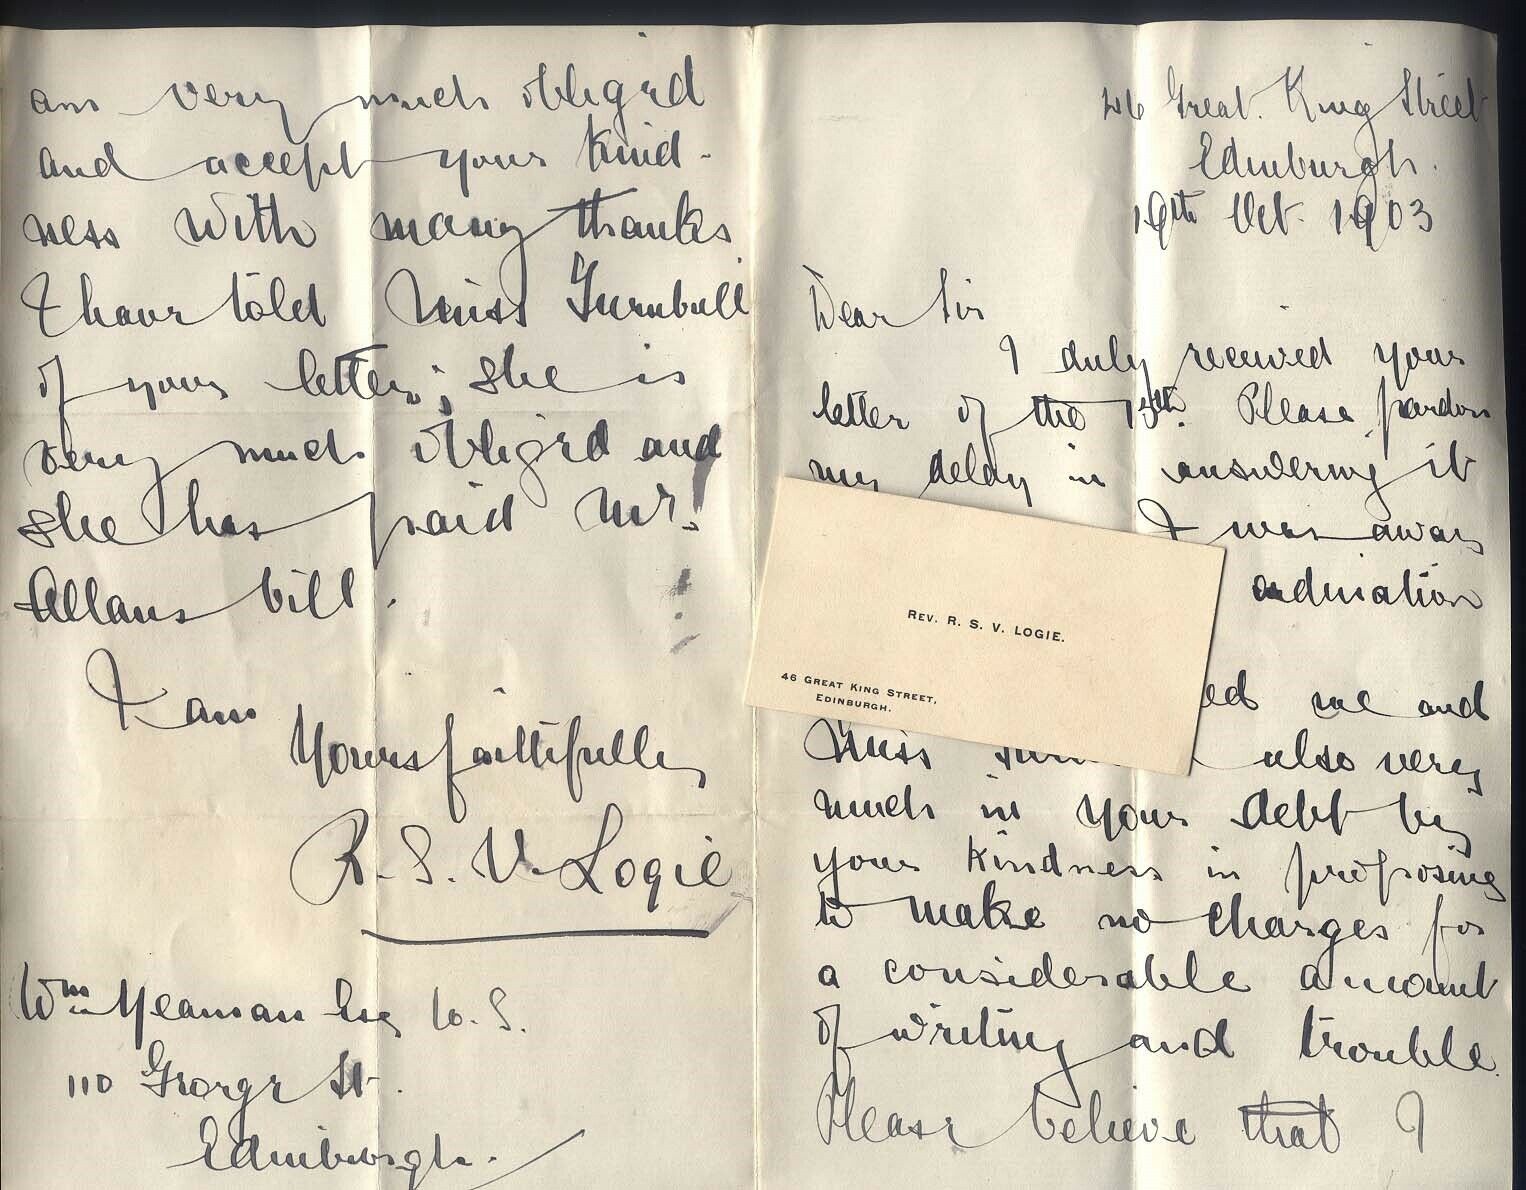 46 Great King Street
Edinburgh.
19th Oct. 1903
Dear Sir
I duly received your
letter of the 15th. Please pardon
my delay in answering it
I was away
ordination
ed me and
Miss also very
much in your debt by
your kindness in proposing
to make no charges for
a considerable amount
of writing and trouble.
Please believe that I
am very much obliged
and accept your kind-
ness with many thanks
I have told Miss Turnbull
of your letter; she is
very much obliged and
she has paid Mr.
Allans bill.
I am
Yours faithfully
R. S. V. Logie
Wm Yeaman Esq W. S.
110 George St.
Edinburgh.
REV. R. S. V. LOGIE.
46 GREAT KING STREET,
EDINBURGH.